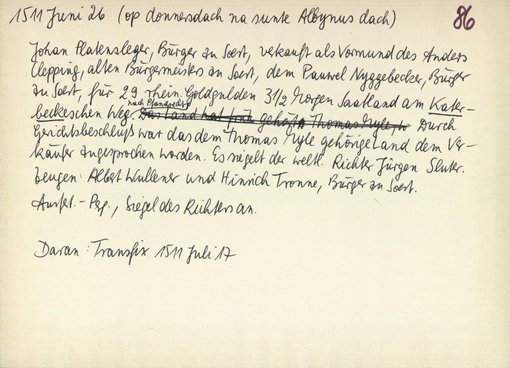 1511 Juni 26 (op donnersdach na sunte Albynus dach) 86
Johan Platensleger, Bürger zu Soest, verkauft als Vormund des Anders
Clepping, alten Bürgermeisters zu Soest, dem Pauwel Nyggebecker, Bürger
zu Soest, für 29 rhein. Goldgulden 3 1/2 Morgen Saatland am Kater-
nach Pfandrecht
beckeschen Weg. Das Land hat früh gehört Thomas Hyle Durch
Gerichtsbeschluß war das dem Thomas Hyle gehörige Land dem Ver-
käufer zugesprochen worden. Es siegelt der weltl. Richter Jürgen Sluter.
Zeugen: Albert Wullener und Hinrich Tronne, Bürger zu Soest.
Ausfert. - Perg., Siegel des Richters an.
Daran: Transfix 1511 Juli 17